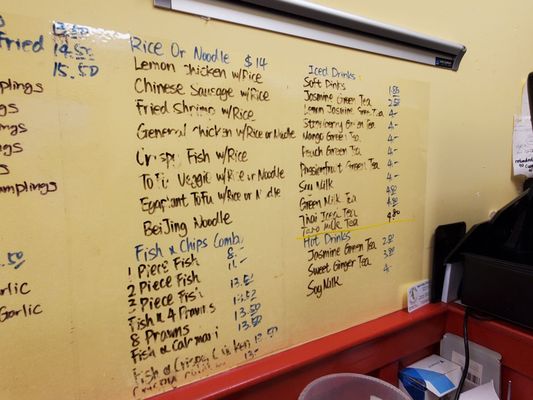 13.50
Fried 14.50
15.50
mplings
ngs
ings
ings
ings
mplings
.50
arlic
Garlic
Rice Or Noodle $14
Lemon Chicken w/Rice
Chinese Sausage w/Rice
Fried Shrimp w/Rice
General Chicken w/Rice or Noodle
Crispy Fish w/Rice
Tofu Veggie w/Rice or Noodle
Eggplant Tofu w/Rice or Noodle
BeiJing Noodle
Fish n Chips Combo
1 Piece Fish 8.-
2 Piece Fish 11.-
3 Piece Fish
Fish & 4 Prawns 13.50
8 Prawns 13.50
Fish & Calamari 13.50
Fish & Crispy Chicken 13.50
13.-
Iced Drinks
Soft Drinks
Jasmine Green Tea 2.50
Lemon Jasmine Green Tea 4.-
Strawberry Green Tea 4.-
Mango Green Tea 4.-
Peach Green Tea 4.-
Passionfruit Green Tea 4.-
Soy Milk 4.-
Green Milk Tea
Thai Iced Tea
Taro Milk Tea 4.80
Hot Drinks
Jasmine Green Tea 2.50
Sweet Ginger Tea
Soy Milk 4.-